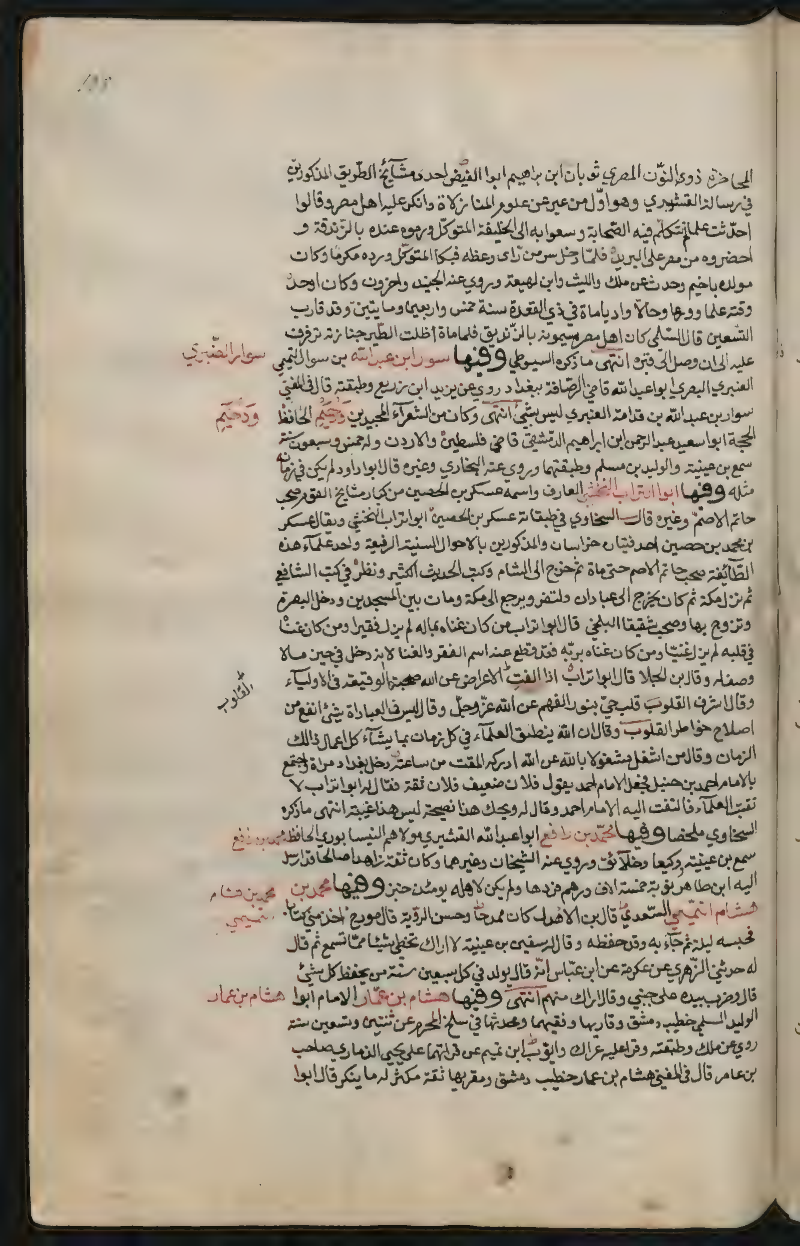 المحاضرة ذوى النون المصري ثوبان ابن ابراهيم ابوا الفيض احد مشائخ الطريق المذكورين
في رسالة القشيري وهو اول من عبر عن علوم المنازلاة وانكر عليه اهل مصر وقالوا
احدثت علما لم تتكلم فيه الصحابة وسعوا به الى الخليفة المتوكل ورموه عنده بالزندقة و
احضروه من مصر على البريد فلما دخل سر من راى وعظه فبكا المتوكل ورده مكرما وكان
مولده باخيم وحدث عن ملك والليث وابن لهيعة وروي عنه الجنيد واخرون وكان اوحد
وقته علما وورعا وحالا وادبا ماة في ذي القعدة سنة خمس واربعين وما يتين وقد قارب
التسعين قال السلمي كان اهل مصر يسمونه بالزنديق فلما ماة اظلت الطير جنازته ترفرف
عليه الى ان وصل الى قبره انتهى ما ذكره السيوطي وفيها سور ابن عبد الله بن سوار التميمي
سوار العنبري
العنبري البصري ابوا عبد الله قاضي الرصافة ببغداد روي عن يزيد ابن زريع وطبقته قال في المغني
سوار بن عبد الله بن قدامة العنبري ليس بشئ انتهى وكان من الشعرآء المجيدين ودحيم الحافظ
ودحيم
الحجة ابوا سعيد عبد الرحمن ابن ابراهيم الدمشقي قاضي فلسطين والاردن وله خمس وسبعون سنة
سمع بن عيينة والوليد بن مسلم وطبقتهما وروي عنه البخاري وغيره قال ابوا داود لم يكن في زمانه
مثله وفيها ابوا التراب النخشبي العارف واسمه عسكر بن الحصين من كبار مشايخ القوم صحب
حاتم الاصم وغيره قال السخاوي في طبقاته عسكر بن الحصين ابوا تراب النخشبي ويقال عسكر
بن محمد بن حصين احد فتيان خراسان والمذكورين بالاحوال السنية الرفيعة واحد علمآء هذه
الطآئفة صحب حاتم الاصم حتى ماة ثم خرج الى الشام وكتب الحديث الكثير ونظر في كتب الشافعي
ثم نزل مكة ثم كان يخرج الى عبادان والثغر ويرجع الى مكة ومات بين المسجدين ودخل البصرة
وتزوج بها وصحب شقيقا البلخي قال ابوا تراب من كان غناه بماله لم يزل فقيرا ومن كان غناه
في قلبه لم يزل غنيا ومن كان غناه بربه فقد قطع عنه اسم الفقر والغنا لانه دخل في حين مالا
وصف له وقال بن الجلا قال ابوا تراب اذا الفت القلوب الاعراض عن الله صحبتها الوقيعة في الاوليآء
القلوب
وقال اشرف القلوب قلب حي بنور الفهم عن الله عز وجل وقال ليس في العباداة شئ انفع من
اصلاح خواطر القلوب وقال ان الله ينطق العلمآء في كل زمان بما يشآء كل اعمال ذالك
الزمان وقال من اشغل مشغولا بالله عن الله ادركه المقت من ساعته دخل بغداد مراة واجتمع
بالامام احمد بن حنبل فجعل الامام احمد يقول فلان ضعيف فلان ثقة فقال له ابوا تراب لا
تغتب العلمآء فالتفت اليه الامام احمد وقال له ويحك هذا نصيحة ليس هذا غيبة انتهى ما ذكره
السخاوي ملخصا وفيها محمد بن رافع ابوا عبد الله القشيري مولاهم النيسابوري الحافظ
محمد بن رافع
سمع بن عيينة وكيعا وخلآئق وروي عنه الشيخان وغيرهما وكان ثقة زاهدا صالحا قد ارسل
اليه ابن طاهر نوبة خمسة الاف درهم فردها ولم يكن لاهله يومئذ خبز وفيها محمد بن
محمد بن هشام
هشام التميمي السعدي قال بن الاهدل كان ممدحا وحسن الروية قال مورج اخذ مني كتابا
تميمي
فحبسه ليلة ثم جآء به وقد حفظه وقال له سفين بن عيينة لا اراك تخطى شيئا مما تسمع ثم قال
له حدثني الزهري عن عكرمة عن ابن عباس انه قال يولد في كل سبعين سنة من يحفظ كل شئ
قال وضرب بيده على جنبي وقال اراك منهم انتهى وفيها هشام بن عمار الامام ابوا
هشام بن عمار
الوليد السلمي خطيب دمشق وقاريها وفقيهها ومحدثها في سلخ المحرم عن ثنتين وتسعين سنة
روي عن ملك وطبقته وقرا عليه عراك وايوب ابن تميم عن قراتهما على يحيى الذماري صاحب
بن عامر قال في المغني هشام بن عمار خطيب دمشق ومقريها ثقة مكثر له ما ينكر قال ابوا